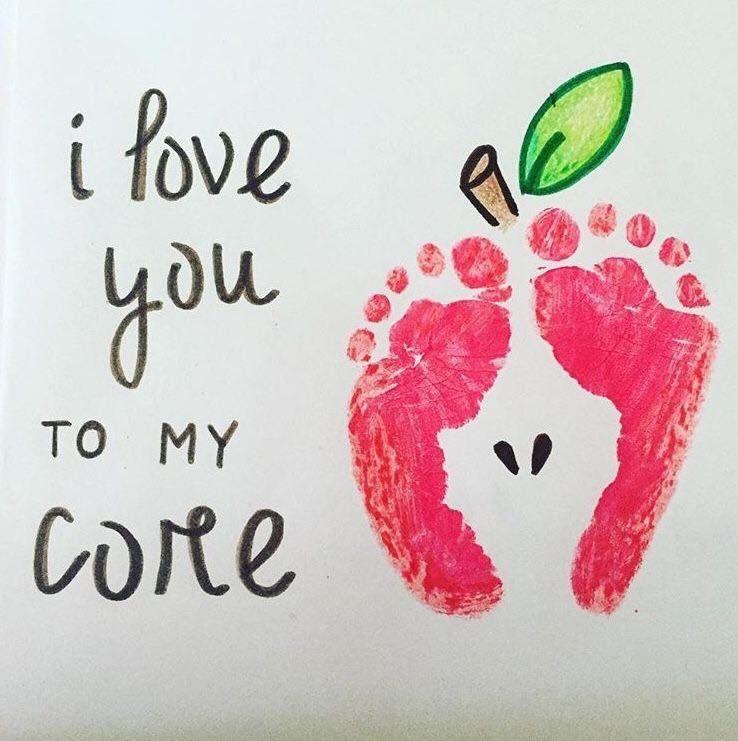 i love
you
TO MY
core